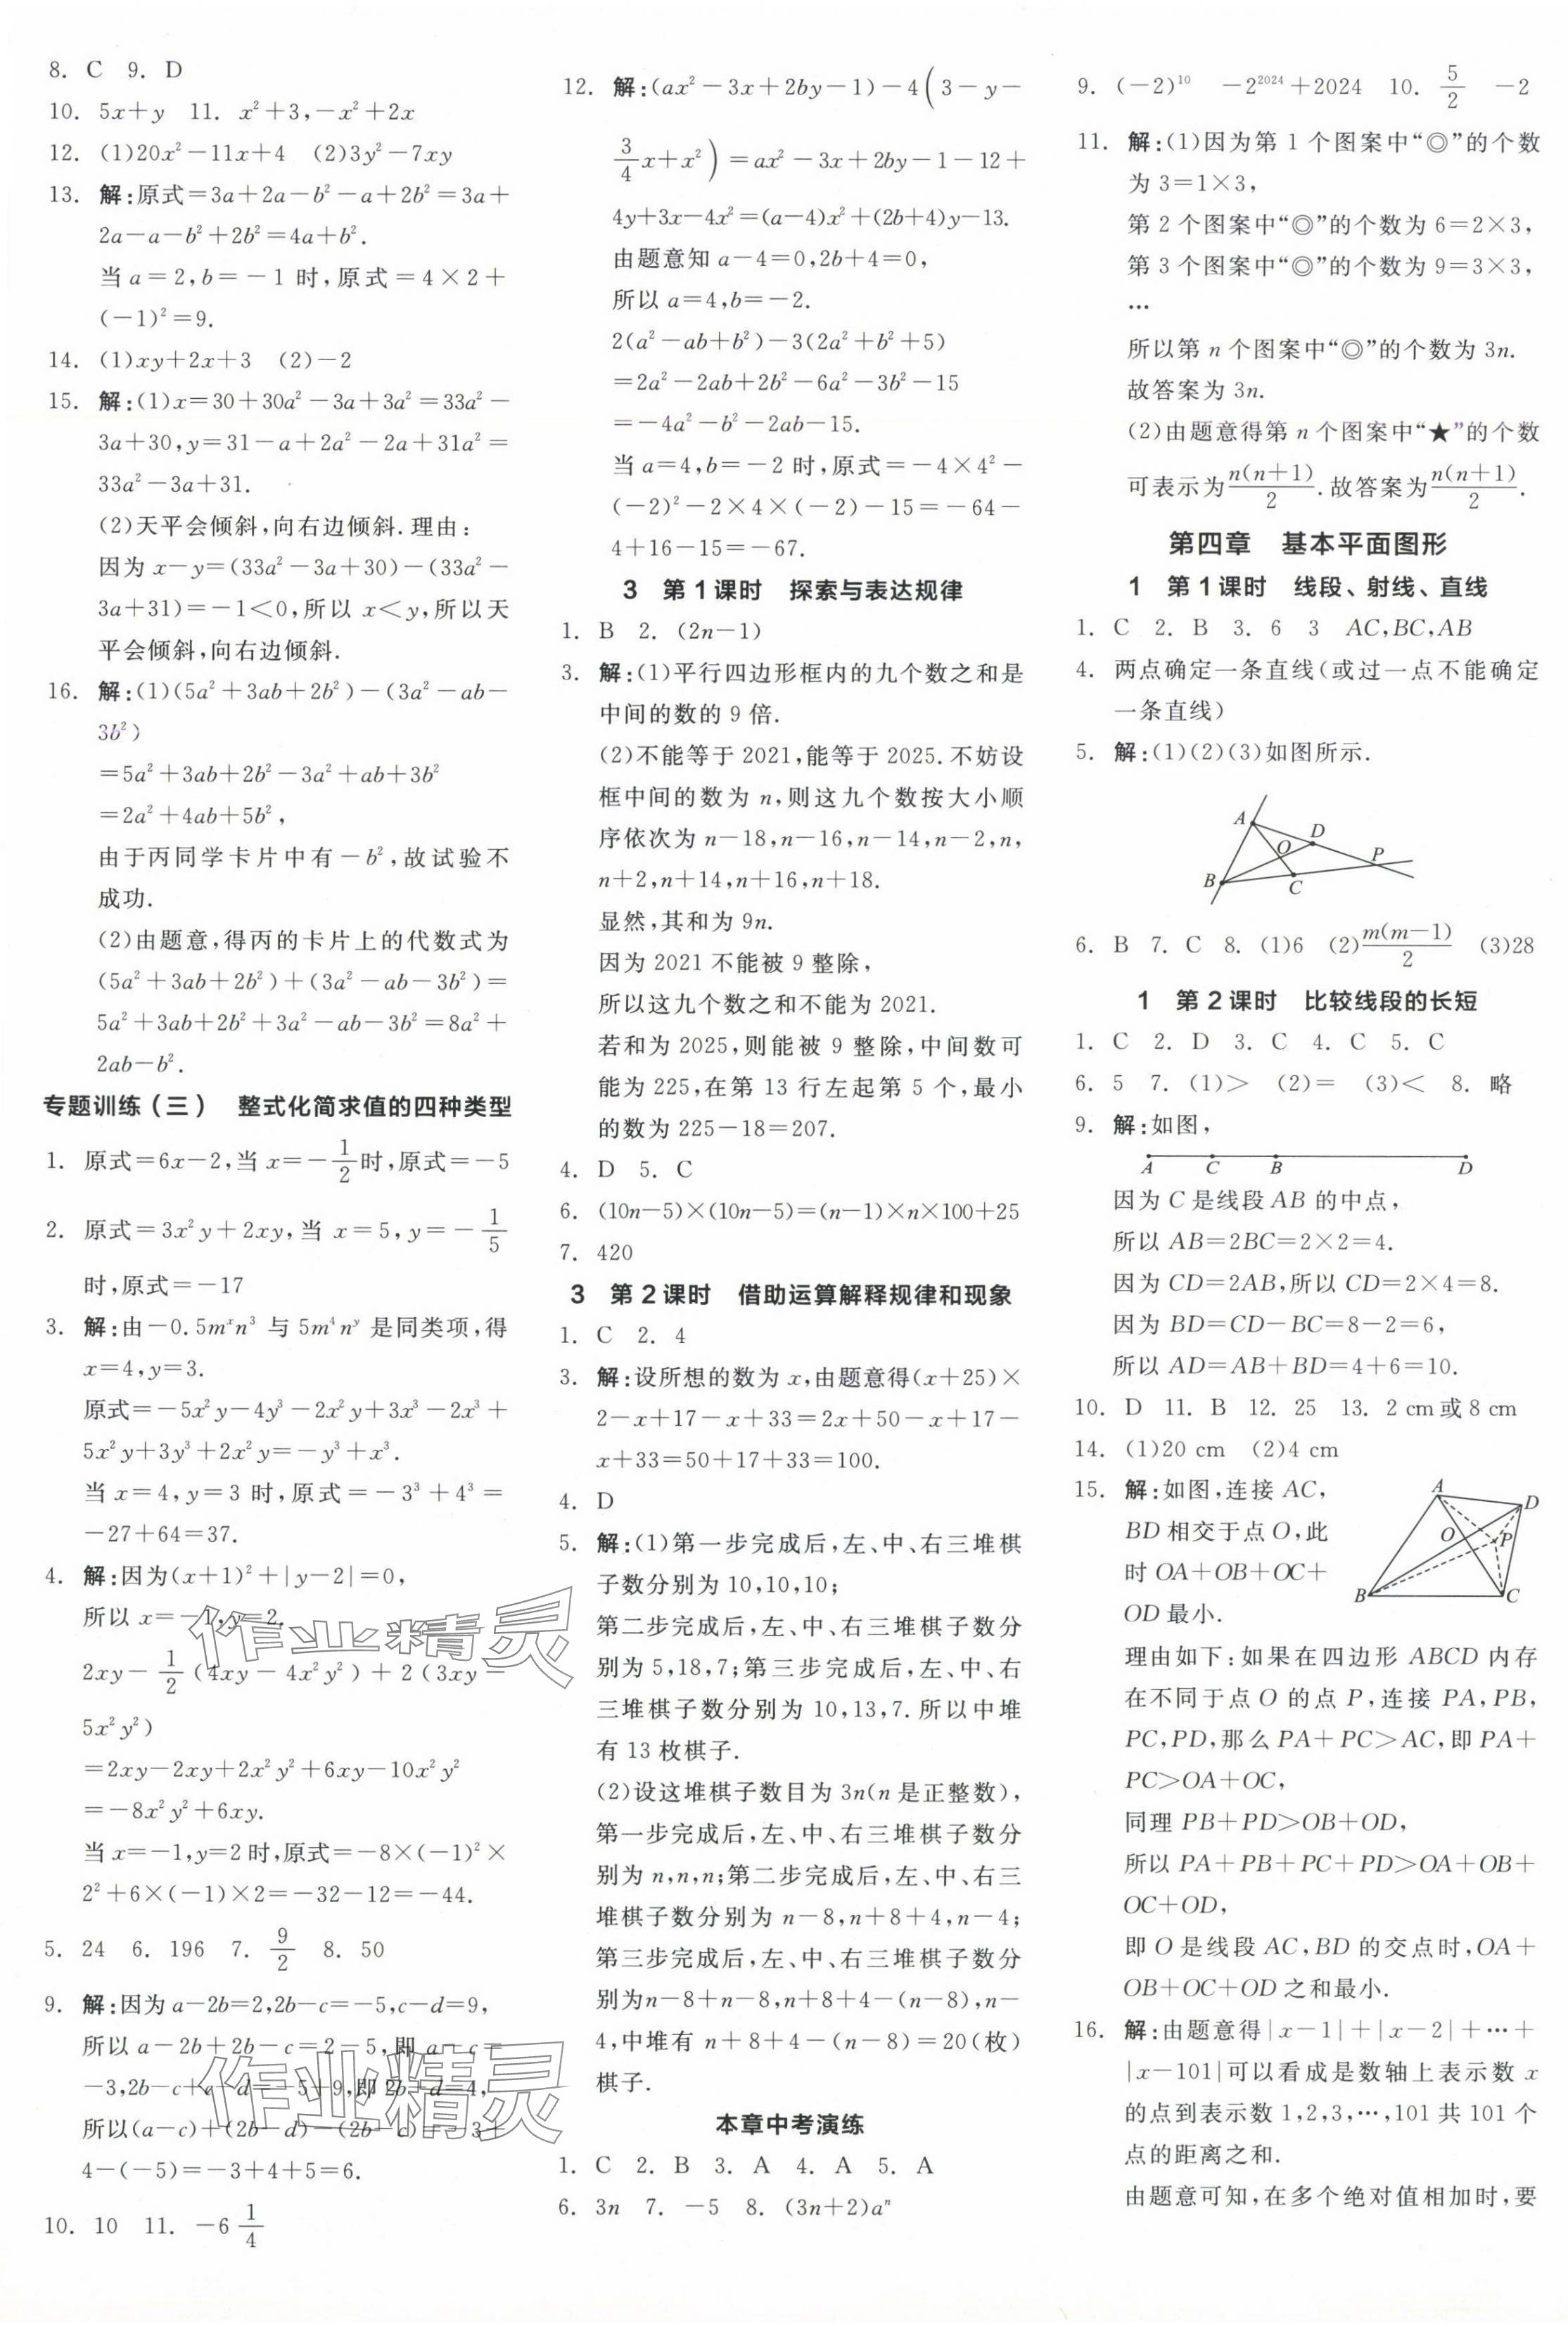 8. C 9. D
10. 5x+y 11. x²+3,-x²+2x
12. (1)20x²-11x+4 (2)3y²-7xy
13. 解:原式=3a+2a-b²-a+2b²=3a+
2a-a-b²+2b²=4a+b².
当 a=2,b=-1 时,原式=4×2+
(-1)²=9.
14. (1)xy+2x+3 (2)-2
15. 解:(1)x=30+30a²-3a+3a²=33a²-
3a+30,y=31-a+2a²-2a+31a²=
33a²-3a+31.
(2)天平会倾斜,向右边倾斜.理由:
因为 x-y=(33a²-3a+30)-(33a²-
3a+31)=-1<0,所以 x<y,所以天
平会倾斜,向右边倾斜.
16. 解:(1)(5a²+3ab+2b²)-(3a²-ab-
3b²)
=5a²+3ab+2b²-3a²+ab+3b²
=2a²+4ab+5b²,
由于丙同学卡片中有-b²,故试验不
成功.
(2)由题意,得丙的卡片上的代数式为
(5a²+3ab+2b²)+(3a²-ab-3b²)=
5a²+3ab+2b²+3a²-ab-3b²=8a²+
2ab-b².
专题训练(三) 整式化简求值的四种类型
1. 原式=6x-2,当 x=-1/2时,原式=-5
2. 原式=3x²y+2xy,当 x=5,y=-1/5
时,原式=-17
3. 解:由-0.5mˣn³ 与 5m⁴nʸ 是同类项,得
x=4,y=3.
原式=-5x²y-4y³-2x²y+3x³-2x³+
5x²y+3y³+2x²y=-y³+x³.
当 x=4,y=3 时,原式=-3³+4³=
-27+64=37.
4. 解:因为(x+1)²+|y-2|=0,
所以 x=-1,y=2.
2xy-1/2(4xy-4x²y²)+2(3xy-
5x²y²)
=2xy-2xy+2x²y²+6xy-10x²y²
=-8x²y²+6xy.
当 x=-1,y=2 时,原式=-8×(-1)²×
2²+6×(-1)×2=-32-12=-44.
5. 24 6. 196 7. 9/2 8. 50
9. 解:因为 a-2b=2,2b-c=-5,c-d=9,
所以 a-2b+2b-c=2-5,即 a-c=
-3,2b-c+c-d=-5+9,即 2b-d=4,
所以(a-c)+(2b-d)-(2b-c)=-3+
4-(-5)=-3+4+5=6.
10. 10 11. -6 1/4
12. 解:(ax²-3x+2by-1)-4(3-y-
3/4x+x²)=ax²-3x+2by-1-12+
4y+3x-4x²=(a-4)x²+(2b+4)y-13.
由题意知 a-4=0,2b+4=0,
所以 a=4,b=-2.
2(a²-ab+b²)-3(2a²+b²+5)
=2a²-2ab+2b²-6a²-3b²-15
=-4a²-b²-2ab-15.
当 a=4,b=-2 时,原式=-4×4²-
(-2)²-2×4×(-2)-15=-64-
4+16-15=-67.
3 第1课时 探索与表达规律
1. B 2. (2n-1)
3. 解:(1)平行四边形框内的九个数之和是
中间的数的 9 倍.
(2)不能等于 2021,能等于 2025.不妨设
框中间的数为 n,则这九个数按大小顺
序依次为 n-18,n-16,n-14,n-2,n,
n+2,n+14,n+16,n+18.
显然,其和为 9n.
因为 2021 不能被 9 整除,
所以这九个数之和不能为 2021.
若和为 2025,则能被 9 整除,中间数可
能为 225,在第 13 行左起第 5 个,最小
的数为 225-18=207.
4. D 5. C
6. (10n-5)×(10n-5)=(n-1)×n×100+25
7. 420
3 第2课时 借助运算解释规律和现象
1. C 2. 4
3. 解:设所想的数为 x,由题意得(x+25)×
2-x+17-x+33=2x+50-x+17-
x+33=50+17+33=100.
4. D
5. 解:(1)第一步完成后,左、中、右三堆棋
子数分别为 10,10,10;
第二步完成后,左、中、右三堆棋子数分
别为 5,18,7;第三步完成后,左、中、右
三堆棋子数分别为 10,13,7.所以中堆
有 13 枚棋子.
(2)设这堆棋子数目为 3n(n 是正整数),
第一步完成后,左、中、右三堆棋子数分
别为 n,n,n;第二步完成后,左、中、右三
堆棋子数分别为 n-8,n+8+4,n-4;
第三步完成后,左、中、右三堆棋子数分
别为n-8+n-8,n+8+4-(n-8),n-
4,中堆有 n+8+4-(n-8)=20(枚)
棋子.
本章中考演练
1. C 2. B 3. A 4. A 5. A
6. 3n 7. -5 8. (3n+2)aⁿ
9. (-2)¹⁰ -2²⁰²⁴+2024 10. 5/2 -2
11. 解:(1)因为第 1 个图案中“◎”的个数
为 3=1×3,
第 2 个图案中“◎”的个数为 6=2×3,
第 3 个图案中“◎”的个数为 9=3×3,
…
所以第 n 个图案中“◎”的个数为 3n.
故答案为 3n.
(2)由题意得第 n 个图案中“★”的个数
可表示为n(n+1)/2.故答案为n(n+1)/2.
第四章 基本平面图形
1 第1课时 线段、射线、直线
1. C 2. B 3. 6 3 AC,BC,AB
4. 两点确定一条直线(或过一点不能确定
一条直线)
5. 解:(1)(2)(3)如图所示.
A D O P B C
6. B 7. C 8. (1)6 (2)m(m-1)/2 (3)28
1 第2课时 比较线段的长短
1. C 2. D 3. C 4. C 5. C
6. 5 7. (1)> (2)= (3)< 8. 略
9. 解:如图,
A C B D
因为 C 是线段 AB 的中点,
所以 AB=2BC=2×2=4.
因为 CD=2AB,所以 CD=2×4=8.
因为 BD=CD-BC=8-2=6,
所以 AD=AB+BD=4+6=10.
10. D 11. B 12. 25 13. 2 cm或 8 cm
14. (1)20 cm (2)4 cm
15. 解:如图,连接 AC,
BD 相交于点 O,此
时 OA+OB+OC+
OD 最小.
A D O P B C
理由如下:如果在四边形 ABCD 内存
在不同于点 O 的点 P,连接 PA,PB,
PC,PD,那么 PA+PC>AC,即 PA+
PC>OA+OC,
同理 PB+PD>OB+OD,
所以 PA+PB+PC+PD>OA+OB+
OC+OD,
即 O 是线段 AC,BD 的交点时,OA+
OB+OC+OD 之和最小.
16. 解:由题意得|x-1|+|x-2|+…+
|x-101|可以看成是数轴上表示数 x
的点到表示数 1,2,3,…,101 共 101 个
点的距离之和.
由题意可知,在多个绝对值相加时,要
作业精灵
作业精灵